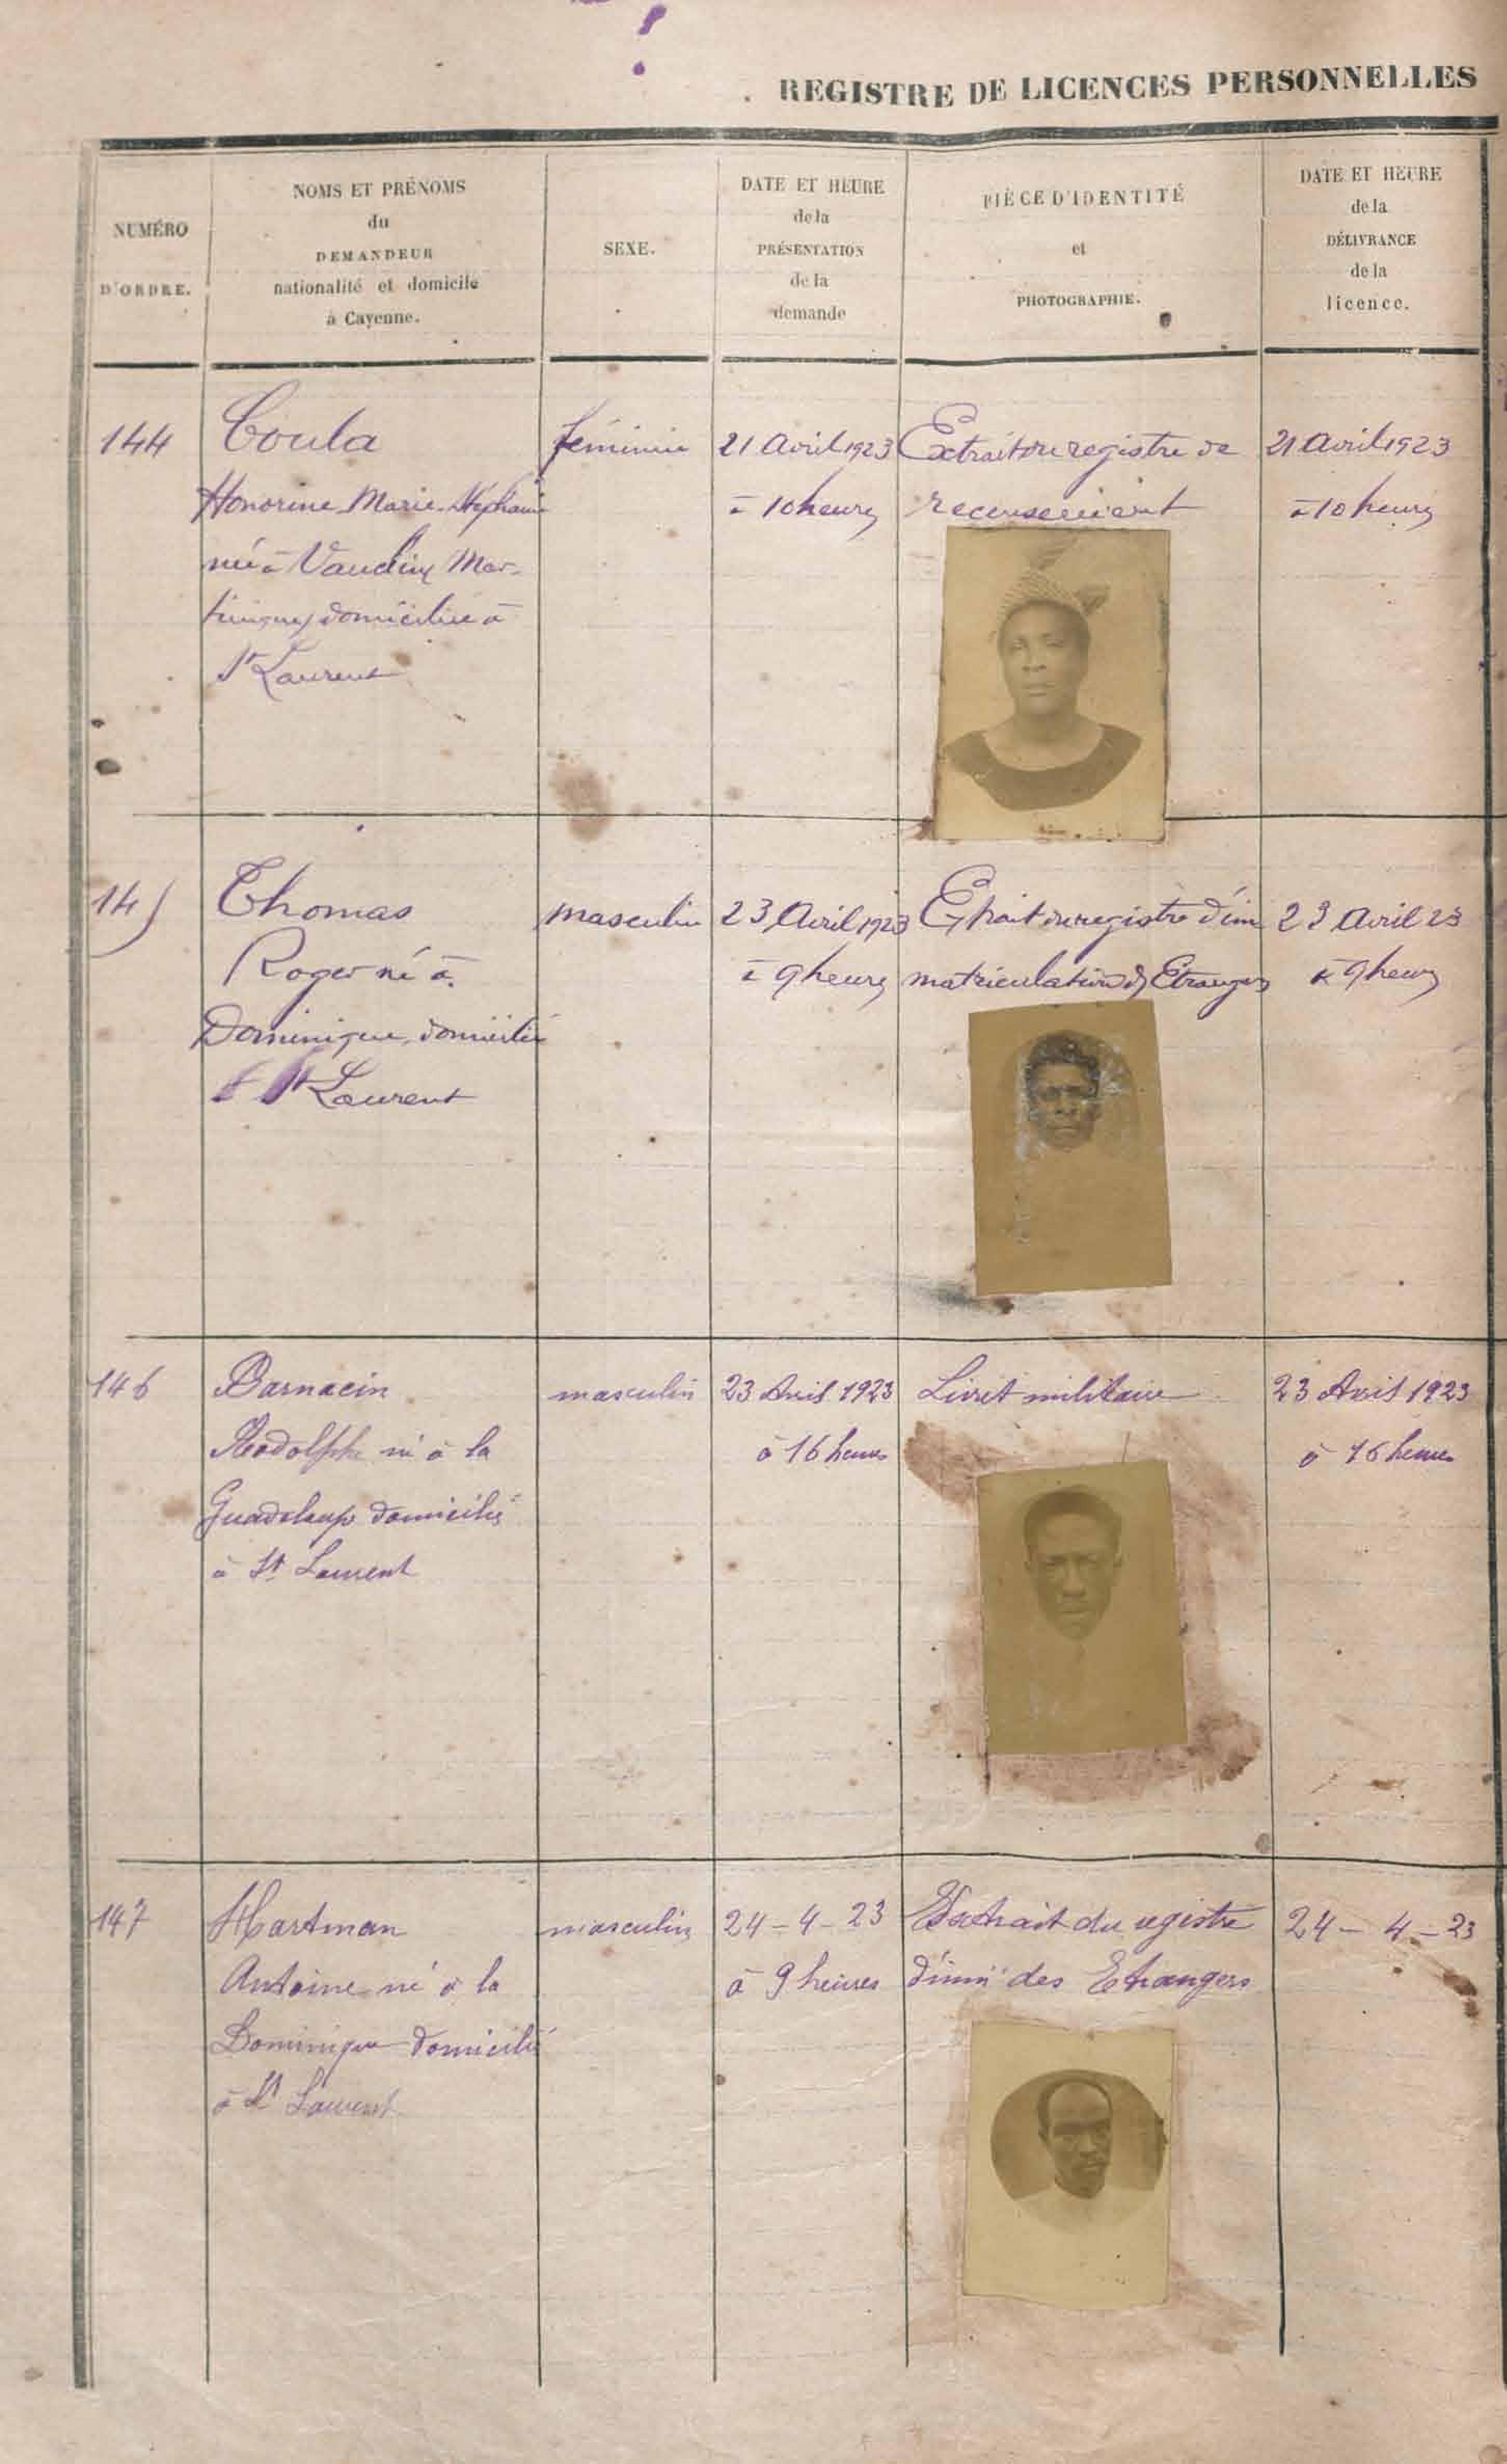 REGISTRE DE LICENCES PERSONNELLES
NUMÉRO
D'ORDRE.
NOMS ET PRÉNOMS
du
DEMANDEUR
nationalité et domicile
à Cayenne.
SEXE.
DATE ET HEURE
de la
PRÉSENTATION
de la
demande
PIÈCE D'IDENTITÉ
et
PHOTOGRAPHIE.
DATE ET HEURE
de la
DÉLIVRANCE
de la
licence.
144
Coula
Honorine Marie Stéphanie
née à Vauclin Mar-
tinique domiciliée à
St Laurent
féminin
21 Avril 1923
à 10 heures
Extrait du registre de
recensement
21 Avril 1923
à 10 heures
145
Thomas
Roger né à
Dominique, domicilié
à St Laurent
masculin
23 Avril 1923
à 9 heures
Extrait du registre d'im
matriculation des Etrangers
23 Avril 23
à 9 heures
146
Darnacin
Rodolphe né à la
Guadeloup domicilié
à St Laurent
masculin
23 Avril 1923
à 16 heures
Livret militaire
23 Avril 1923
à 16 heures
147
Hartman
Antoine né à la
Dominique domicilié
à St Laurent
masculin
24-4-23
à 9 heures
Extrait du registre
d'imm des Etrangers
24-4-23